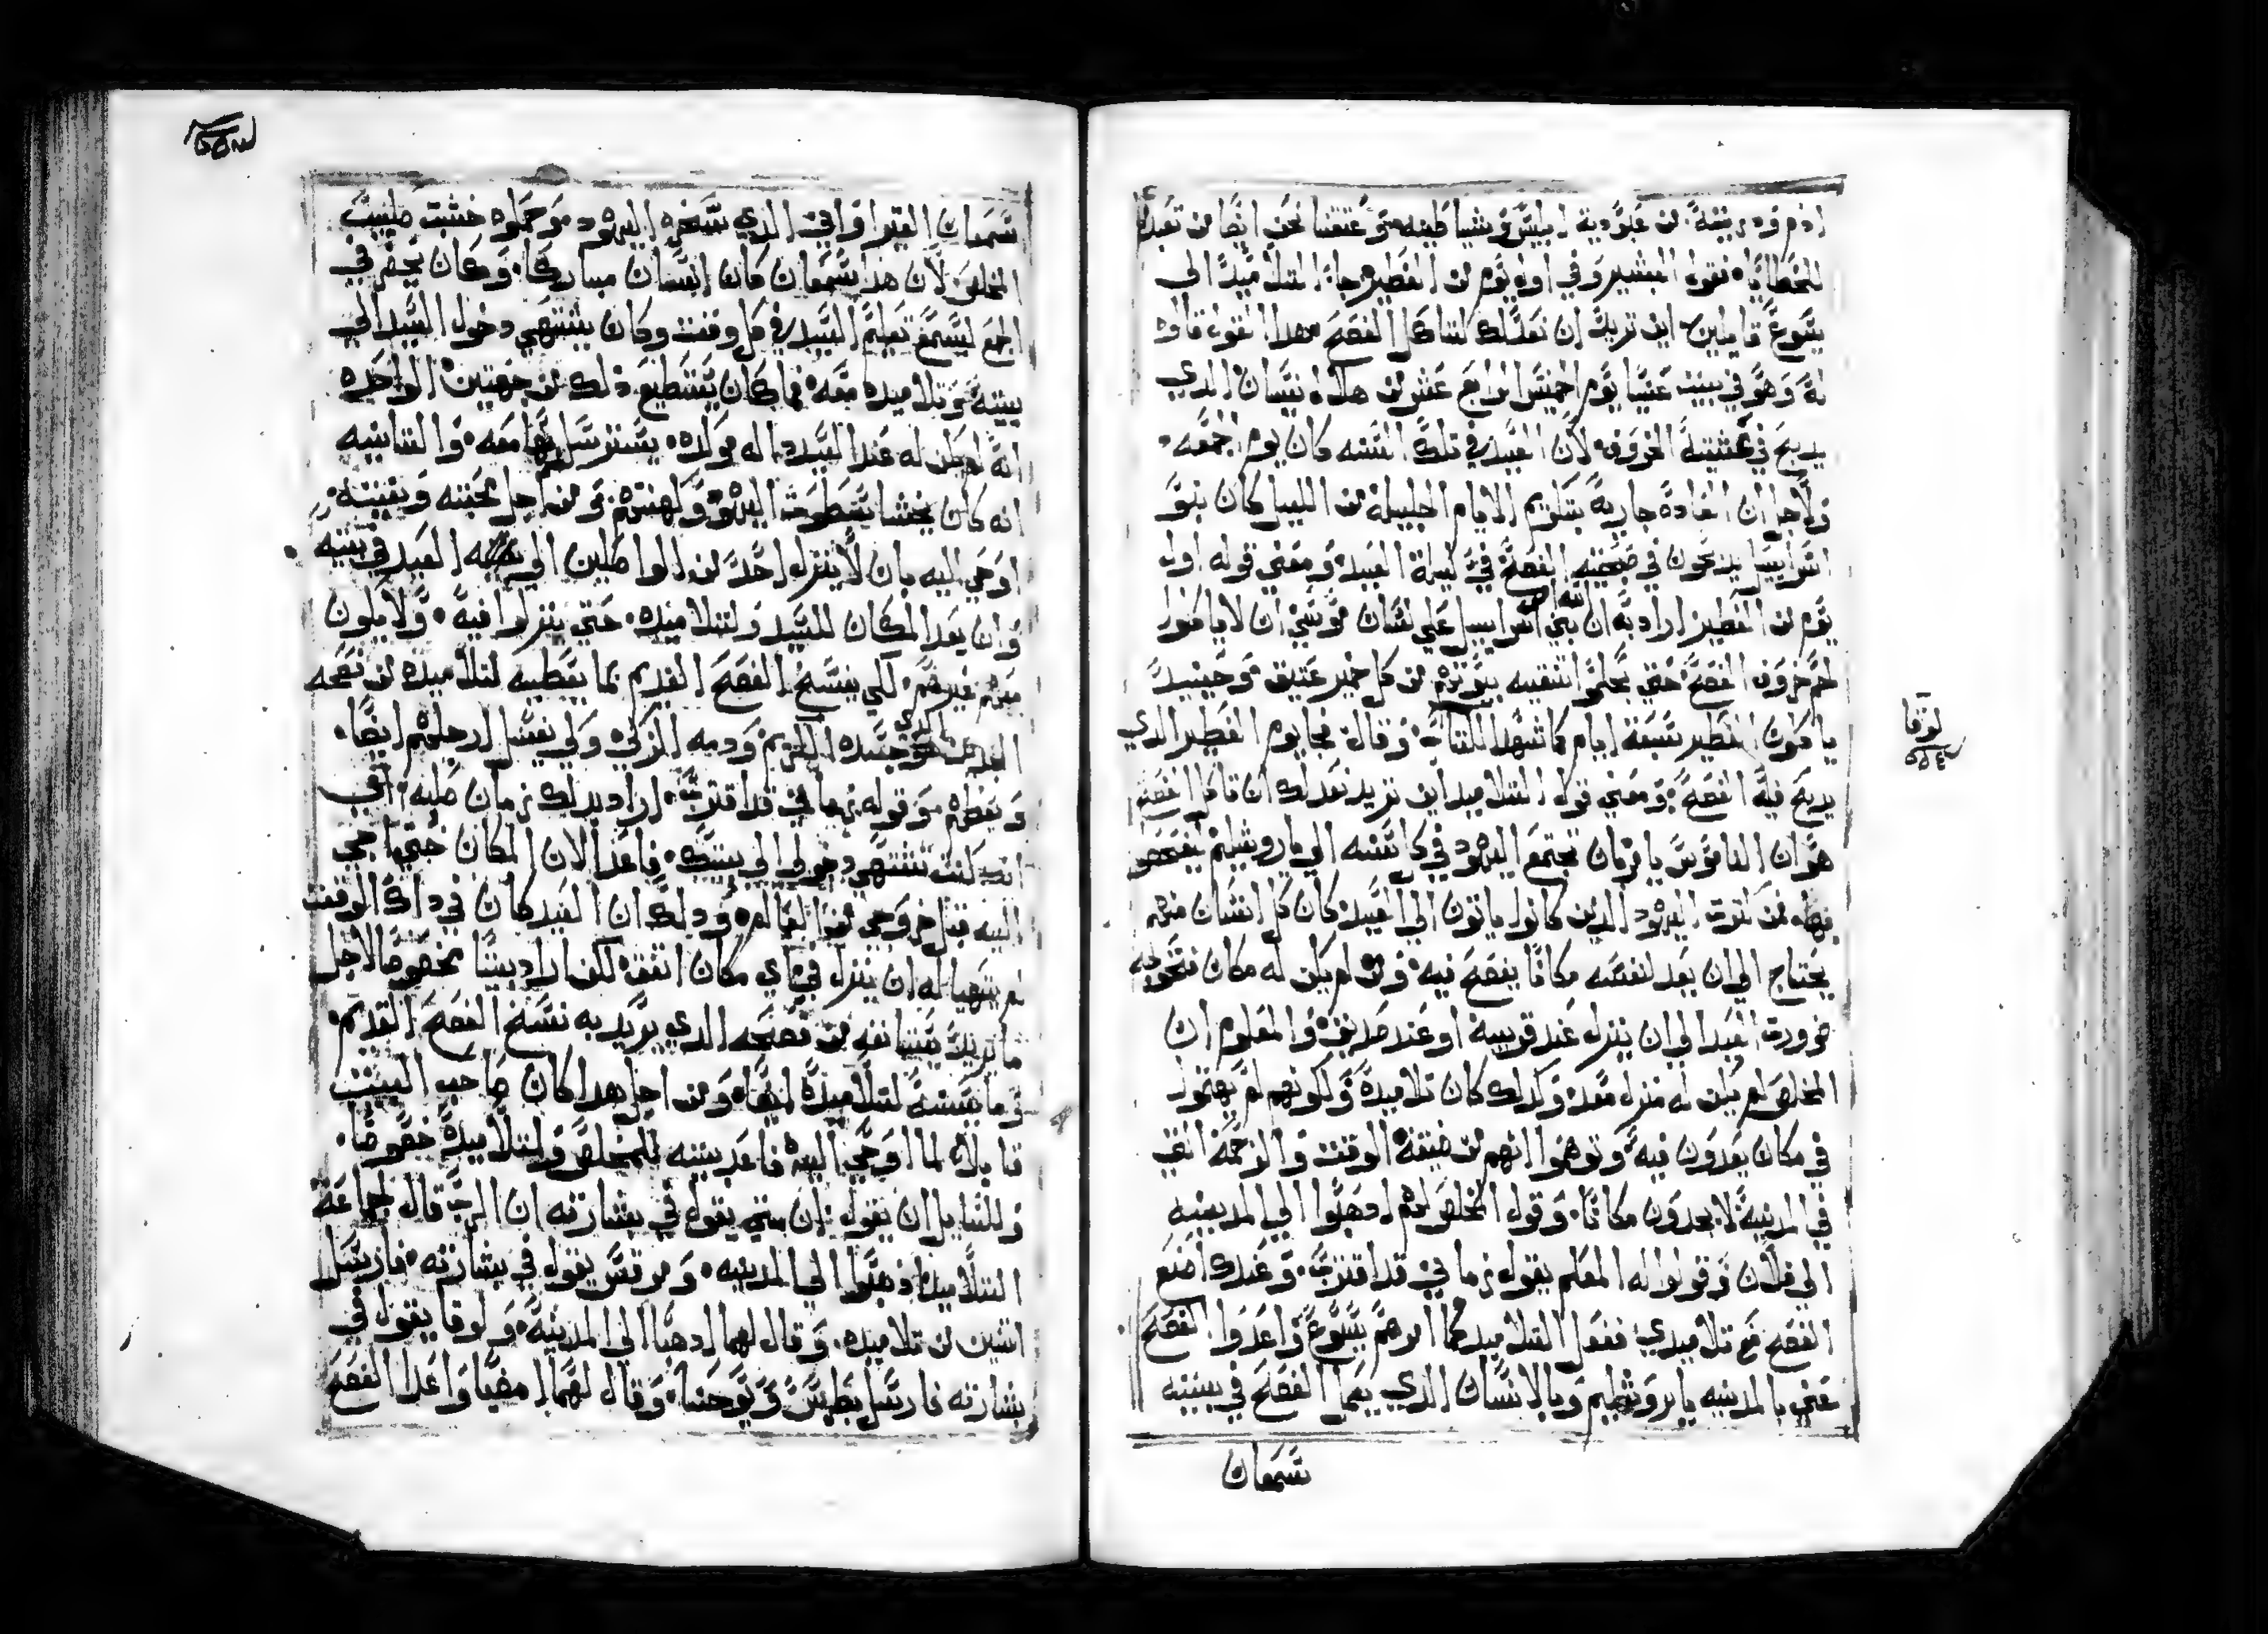 ادم ودريته من عبودية ابليس وشياطينه وعتقنا نحن ايضا من تعبدنا
للخطايا نقول البشير وفي اول يوم من الفطير جاء التلاميد الى
يسوع قايلين اين تريد ان نعد لك لتاكل الفصح هدا القول قالوه
له وهو في بيت عنيا يوم الخميس الرابع عشر من هلال نيسان الدي
يدبح في عشيته الخروف لان العيد في تلك السنه كان يوم الجمعه
ولاجل ان العادة جارية بتكريم الايام الجليلة من الليل كان بنو
اسراييل يدبحون في صحيته الفصح في ليلة العيد ومعني قوله اول
يوم من الفطير اراد به ان الله امر بني اسراييل علي لسان موسي ان لا ياكلوا
لحم خروف الفصح حتي يخلوا بيوتهم من كل خمير عتيق وحينيد
ياكلون الفطير سبعة ايام كما شهد الكتاب وقال لوقا يوم الفطير الدي
يدبح فيه الفصح ومعني قول التلاميد اين تريد نعد لك ان تاكل الفصح
هو ان الناموس يامر بان تجتمع اليهود في كل سنه الي ياروشليم يفصحوا
بها من كثرت اليهود الدين كانوا ياتون الي العيد كان كل انسان منهم
يحتاج الي ان يعد لنفسه مكانا يفصح فيه ومن لم يكن له مكان
ضرورت العيد الي ان ينزل عند قريبه او عند صديقه والمعلوم ان
المخلص لم يكن له منزل معد وكدلك كان تلاميده ولكونهم لم يهتموا
في مكان يعدون فيه وتوهموا انهم من ضيقة الوقت والزحمة التي
في المدينة لا يجدون مكانا وقول المخلص لهم ادهبوا الي المدينه
الي فلان وقولوا له المعلم يقول زماني قد اقترب وعندك اصنع
الفصح مع تلاميدي ففعل التلاميد كما امرهم يسوع واعدوا الفصح
عني بالمدينه ياروشليم وبالانسان الدي يعمل الفصح في بيته
سمعان
لوقا
سمعان القيرواني الدي سخره اليهود وحملوه خشبت صليب
المخلص لان هدا سمعان كان انسان مباركا وكان يحضر في
الجمع ليسمع تعليم السيد في كل وقت وكان يشتهي دخول السيد الي
بيته وتلاميده معه فما كان يستطيع دلك من جهتين الواحده
انه لم يكن له عند السيد داله موكده يسترسل بها معه والتانيه
انه كان يخشا سطوت اليهود وكهنتهم ومن اجل محبته ويقينه
اوحي اليه بان لا ينزل احد من الواصلين الي العيد في بيته
وان يعد المكان للسيد ولتلاميده حتي ينزلوا فيه ولا يكون
معهم غيرهم لكي يفسخ الفصح القديم بما يعطيه لتلاميده من فصحه
الدي هو جسده الكريم ودمه الزكي ولكي يغسل ارجلهم ايضا
ويعظهم وقوله زماني قد اقترب اراد بدلك زمان صلبه اي
انت كنت تشتهي دخولي الي بيتك فاعد الان المكان حتي اجي
اليه قبل خروجي من العالم ودلك ان السيد كان في داك الوقت
لم يتهيا له ان ينزل في اي مكان اتفق لكن اراد بيتا مخصوصا لاجل
ما يريد من فصحه الدي يريد به نسخ الفصح القديم
لتلاميده ايضا ومن اجل هدا كان صاحب البيت
قابلا لما اوحي اليه فاعد بيته للمخلص ولتلاميده خصوصا
وللسايل ان يقول ان متي يقول في بشارته ان الرب قال لجماعة
التلاميد ادهبوا الي المدينه ومرقس يقول في بشارته فارسل
اتنين من تلاميده وقال لهما ادهبا الي المدينة ولوقا يقول في
بشارته فارسل بطرس ويوحنا وقال لهما امضيا واعدا الفصح